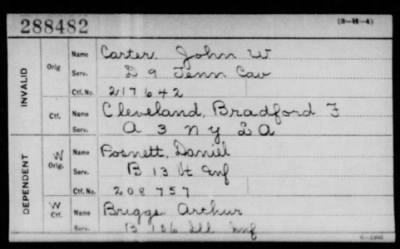 288482 (3-H-4)
INVALID
Orig. Name Carter, John W
Serv. D 9 Tenn Cav
Ctf. No. 217642
Ctf. Name Cleveland, Bradford F
Serv. A 3 N Y L A
DEPENDENT
W Orig. Name Posnett, Daniel
Serv. B 13 Vt Inf
Ctf. No. 208757
W Ctf. Name Briggs Arthur
Serv. 156 Ill Inf